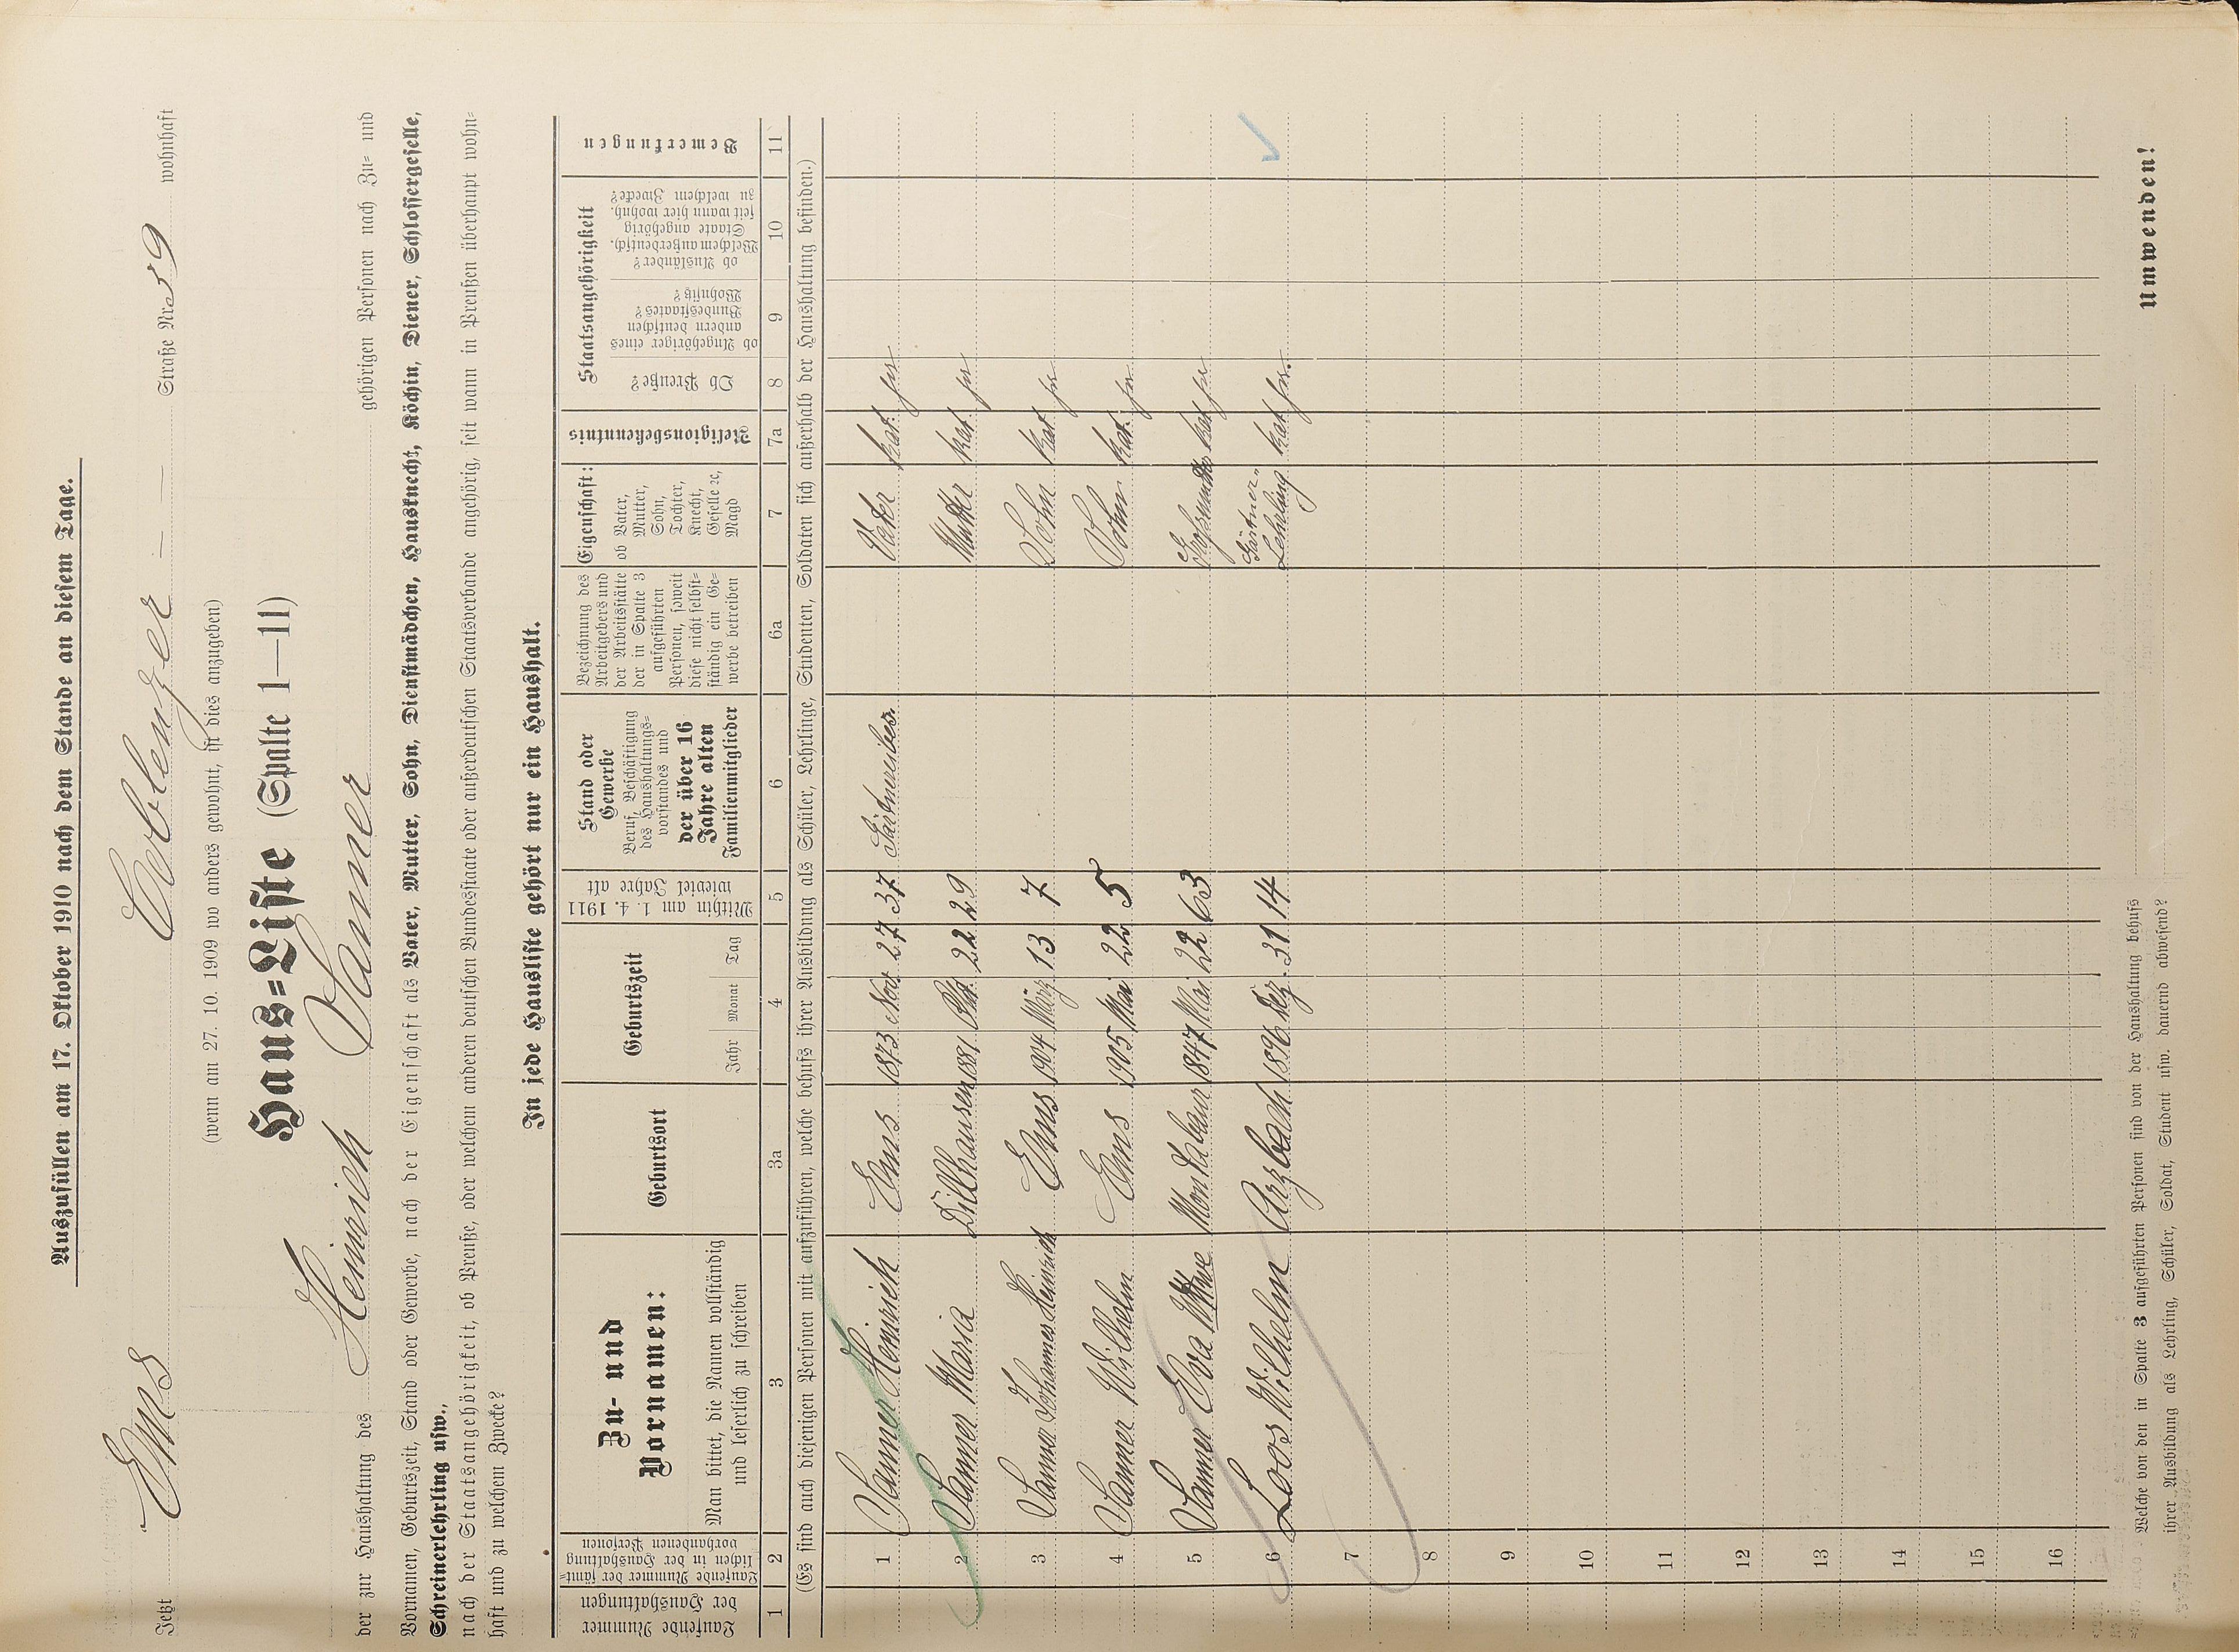 Auszufüllen am 17. Oktober 1910 nach dem Stande an diesem Tage.
Jetzt Ems Coblenzer - - Straße Nr. 39 wohnhaft
(wenn am 27. 10. 1909 wo anders gewohnt, ist dies anzugeben)
Haus=Liste (Spalte 1—11)
der zur Haushaltung des Heinrich Sanner gehörigen Personen nach Zu= und
Vornamen, Geburtszeit, Stand oder Gewerbe, nach der Eigenschaft als Vater, Mutter, Sohn, Dienstmädchen, Hausknecht, Köchin, Diener, Schlossergeselle,
Schreinerlehrling usw.,
nach der Staatsangehörigkeit, ob Preuße, oder welchem anderen deutschen Bundesstaate oder außerdeutschen Staatsverbande angehörig, seit wann in Preußen überhaupt wohn=
haft und zu welchem Zwecke?
In jede Hausliste gehört nur ein Haushalt.
Laufende Nummer
der Haushaltungen
Laufende Nummer der sämt=
lichen in der Haushaltung
vorhandenen Personen
Zu- und
Vornamen:
Man bittet, die Namen vollständig
und leserlich zu schreiben
Geburtsort
Geburtszeit
Jahr Monat Tag
Mithin am 1. 4. 1911
wieviel Jahre alt
Stand oder
Gewerbe
Beruf, Beschäftigung
des Haushaltungs=
vorstandes und
der über 16
Jahre alten
Familienmitglieder
Bezeichnung des
Arbeitgebers und
der Arbeitsstätte
der in Spalte 3
aufgeführten
Personen, soweit
diese nicht selbst=
ständig ein Ge=
werbe betreiben
Eigenschaft:
ob Vater,
Mutter,
Sohn,
Tochter,
Knecht,
Geselle ꝛc,
Magd
Religionsbekenntnis
Staatsangehörigkeit
Ob Preuße?
ob Angehöriger eines
andern deutschen
Bundesstaates?
Wohnsitz?
ob Ausländer?
Welchem außerdeutsch.
Staate angehörig
seit wann hier wohnh.
zu welchem Zwecke?
Bemerkungen
1 2 3 3a 4 5 6 6a 7 7a 8 9 10 11
(Es sind auch diejenigen Personen mit aufzuführen, welche behufs ihrer Ausbildung als Schüler, Lehrlinge, Studenten, Soldaten sich außerhalb der Haushaltung befinden.)
1 Sanner Heinrich Ems 1873 Nov. 27 37 Vater kat.
2 Sanner Maria Dillhausen 1881 22 29 Mutter kat.
3 Sanner Johannes Heinrich Ems 1904 März 13 7 Sohn kat.
4 Sanner Wilhelm Ems 1905 Mai 22 5 Sohn kat.
5 Sanner Eva Wtwe Montabaur 1847 Mai 22 63 Großmutter kat
6 Loos Wilhelm Arzbach 1896 Dez. 31 14 Gärtner-
Lehrling kat
7
8
9
10
11
12
13
14
15
16
Welche von den in Spalte 3 aufgeführten Personen sind von der Haushaltung behufs
ihrer Ausbildung als Lehrling, Schüler, Soldat, Student usw. dauernd abwesend?
Umwenden!